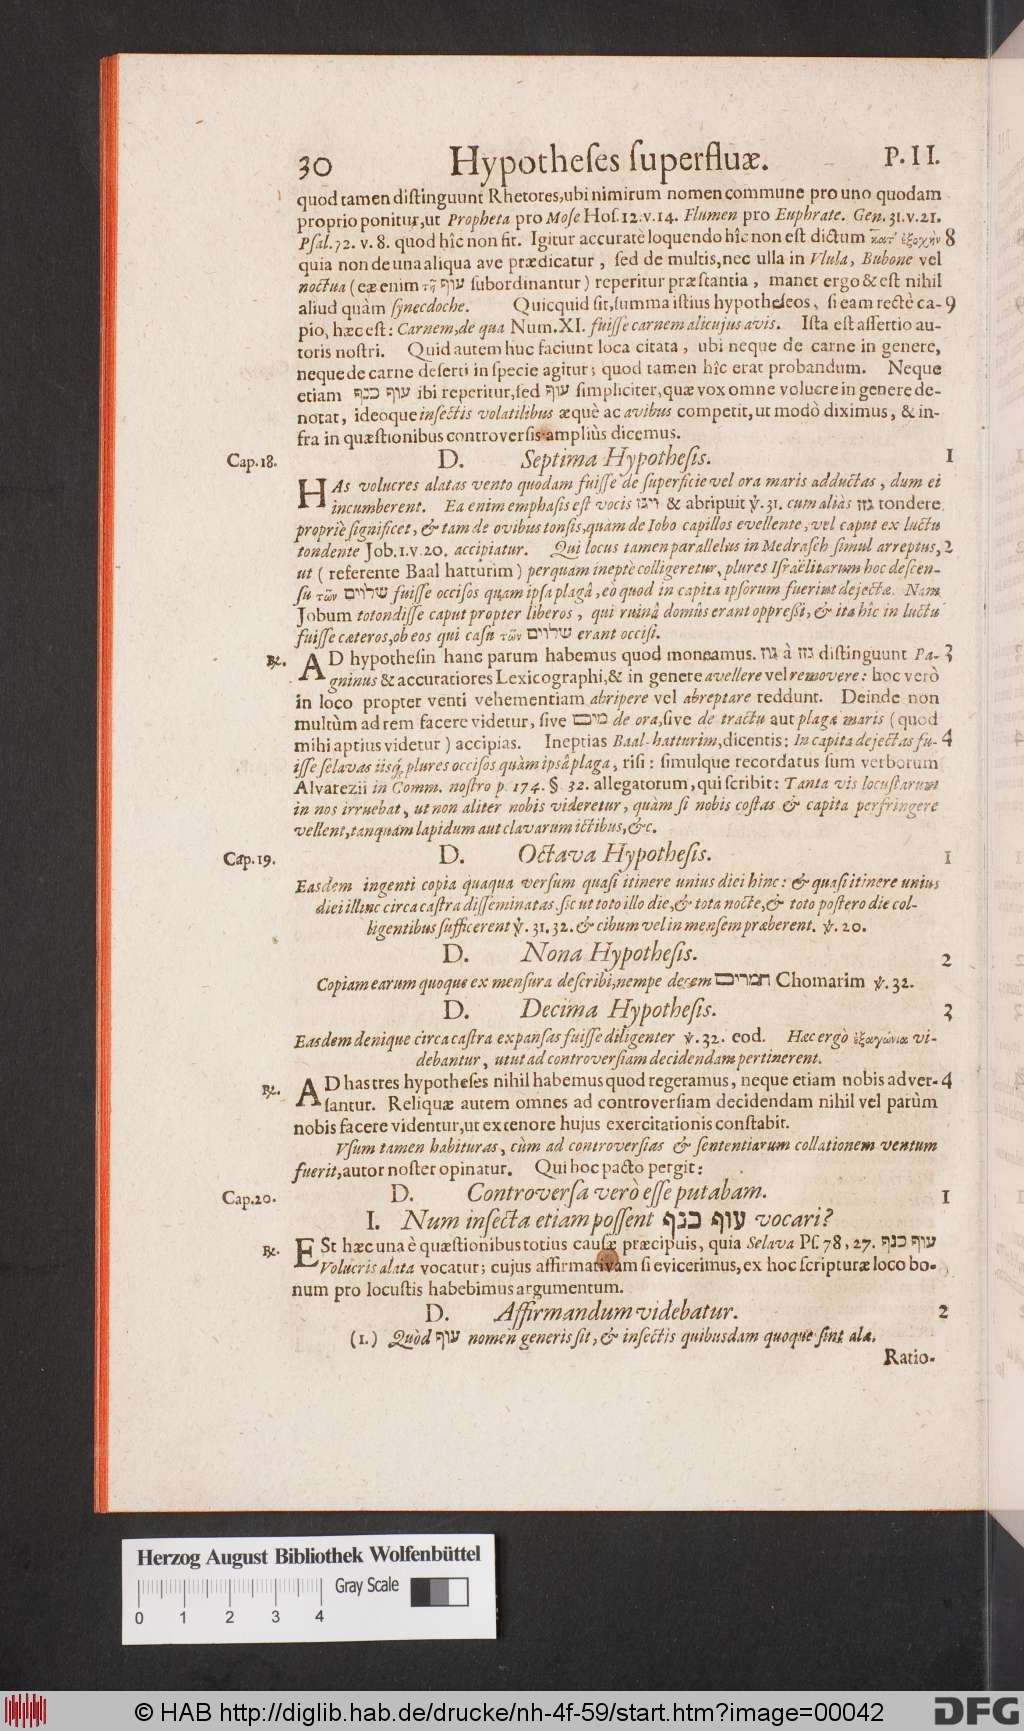 30 Hypotheſes ſuperfluæ. P. II.
quod tamen diſtinguunt Rhetores, ubi nimirum nomen commune pro uno quodam
proprio ponitur, ut Propheta pro Moſe Hoſ. 12. v. 14. Flumen pro Euphrate. Gen. 31. v. 21.
Pſal. 72. v. 8. quod hîc non fit. Igitur accuratè loquendo hîc non eſt dictum κατ' ἐξοχὴν 8
quia non de una aliqua ave prædicatur, ſed de multis, nec ulla in Vlula, Bubone vel
noctua (eæ enim τῇ עוף ſubordinantur) reperitur præſtantia, manet ergo & eſt nihil
aliud quàm ſynecdoche. Quicquid ſit, ſumma iſtius hypotheſeos, ſi eam rectè ca- 9
pio, hæc eſt: Carnem, de qua Num. XI. fuiſſe carnem alicujus avis. Iſta eſt aſſertio au-
toris noſtri. Quid autem huc faciunt loca citata, ubi neque de carne in genere,
neque de carne deſerti in ſpecie agitur; quod tamen hîc erat probandum. Neque
etiam עוף כנף ibi reperitur, ſed עוף ſimpliciter, quæ vox omne volucre in genere de-
notat, ideoque inſectis volatilibus æquè ac avibus competit, ut modò diximus, & in-
fra in quæſtionibus controverſis ampliùs dicemus.
Cap. 18. D. Septima Hypotheſis. 1
HAs volucres alatas vento quodam fuiſſe de ſuperficie vel ora maris adductas, dum ei
incumberent. Ea enim emphaſis eſt vocis ויגז & abripuit ꝟ. 31. cum aliàs גזז tondere
propriè ſignificet, & tam de ovibus tonſis, quàm de Iobo capillos evellente, vel caput ex luctu
tondente Job. 1. v. 20. accipiatur. Qui locus tamen parallelus in Medraſch ſimul arreptus, 2
ut (referente Baal hatturim) perquam ineptè colligeretur, plures Iſraëlitarum hoc deſcen-
ſu τῶν שלוים fuiſſe occiſos quam ipſa plagâ, eò quod in capita ipſorum fuerint dejectæ. Nam
Jobum totondiſſe caput propter liberos, qui ruinâ domûs erant oppreſſi, & ita hîc in luctu
fuiſſe cæteros, ob eos qui caſu τῶν שלוים erant occiſi.
℞. AD hypotheſin hanc parum habemus quod moneamus. גוז à גזז diſtinguunt Pa- 3
gninus & accuratiores Lexicographi, & in genere avellere vel removere: hoc verò
in loco propter venti vehementiam abripere vel abreptare reddunt. Deinde non
multùm ad rem facere videtur, ſive מים de ora, ſive de tractu aut plaga maris (quod
mihi aptius videtur) accipias. Ineptias Baal-hatturim, dicentis: In capita dejectas fu- 4
iſſe ſelavas iisq́; plures occiſos quàm ipsâ plaga, riſi: ſimulque recordatus ſum verborum
Alvarezii in Comm. noſtro p. 174. §. 32. allegatorum, qui ſcribit: Tanta vis locuſtarum
in nos irruebat, ut non aliter nobis videretur, quàm ſi nobis coſtas & capita perfringere
vellent, tanquam lapidum aut clavarum ictibus, &c.
Cap. 19. D. Octava Hypotheſis. 1
Easdem ingenti copia quaqua verſum quaſi itinere unius diei hinc: & quaſi itinere unius
diei illinc circa caſtra diſſeminatas. ſic ut toto illo die, & tota nocte, & toto poſtero die col-
ligentibus ſufficerent ꝟ. 31. 32. & cibum vel in menſem præberent. ꝟ. 20.
D. Nona Hypotheſis. 2
Copiam earum quoque ex menſura deſcribi, nempe decem חמרים Chomarim ꝟ. 32.
D. Decima Hypotheſis. 3
Easdem denique circa caſtra expanſas fuiſſe diligenter ꝟ. 32. eod. Hæc ergò ἑξαγώνια vi-
debantur, utut ad controverſiam decidendam pertinerent.
℞. AD has tres hypotheſes nihil habemus quod regeramus, neque etiam nobis adver- 4
ſantur. Reliquæ autem omnes ad controverſiam decidendam nihil vel parùm
nobis facere videntur, ut ex tenore hujus exercitationis conſtabit.
Vſum tamen habituras, cùm ad controverſias & ſententiarum collationem ventum
fuerit, autor noſter opinatur. Qui hoc pacto pergit:
Cap. 20. D. Controverſa verò eſſe putabam. 1
I. Num inſecta etiam poſſent עוף כנף vocari?
℞. ESt hæc una è quæſtionibus totius cauſæ præcipuis, quia Selava Pſ. 78, 27. עוף כנף
Volucris alata vocatur; cujus affirmativam ſi evicerimus, ex hoc ſcripturæ loco bo-
num pro locuſtis habebimus argumentum.
D. Affirmandum videbatur. 2
(1.) Quòd עוף nomen generis ſit, & inſectis quibusdam quoque ſint alæ.
Ratio-
Herzog August Bibliothek Wolfenbüttel
Gray Scale
0 1 2 3 4
© HAB http://diglib.hab.de/drucke/nh-4f-59/start.htm?image=00042
DFG